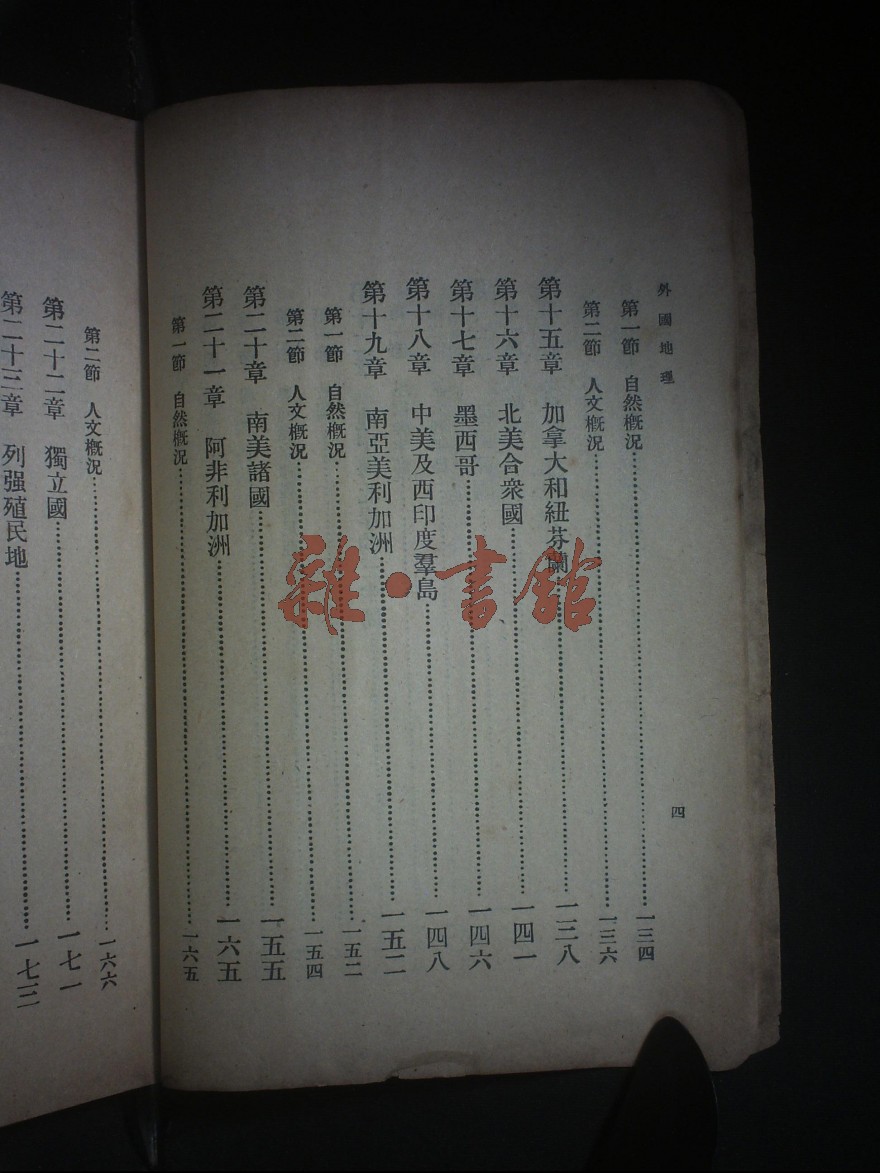 外國地理
第一節 自然概況……一三四
第二節 人文概況……一三六
第十五章 加拿大和紐芬蘭……一三八
第十六章 北美合衆國……一四一
第十七章 墨西哥……一四六
第十八章 中美及西印度羣島……一四八
第十九章 南亞美利加洲……一五二
第一節 自然概況……一五二
第二節 人文概況……一五四
第二十章 南美諸國……一五五
第二十一章 阿非利加洲……一六五
第一節 自然概況……一六五
四
第二節 人文概況……一六六
第二十二章 獨立國……一七一
第二十三章 列强殖民地……一七三
雜·書館